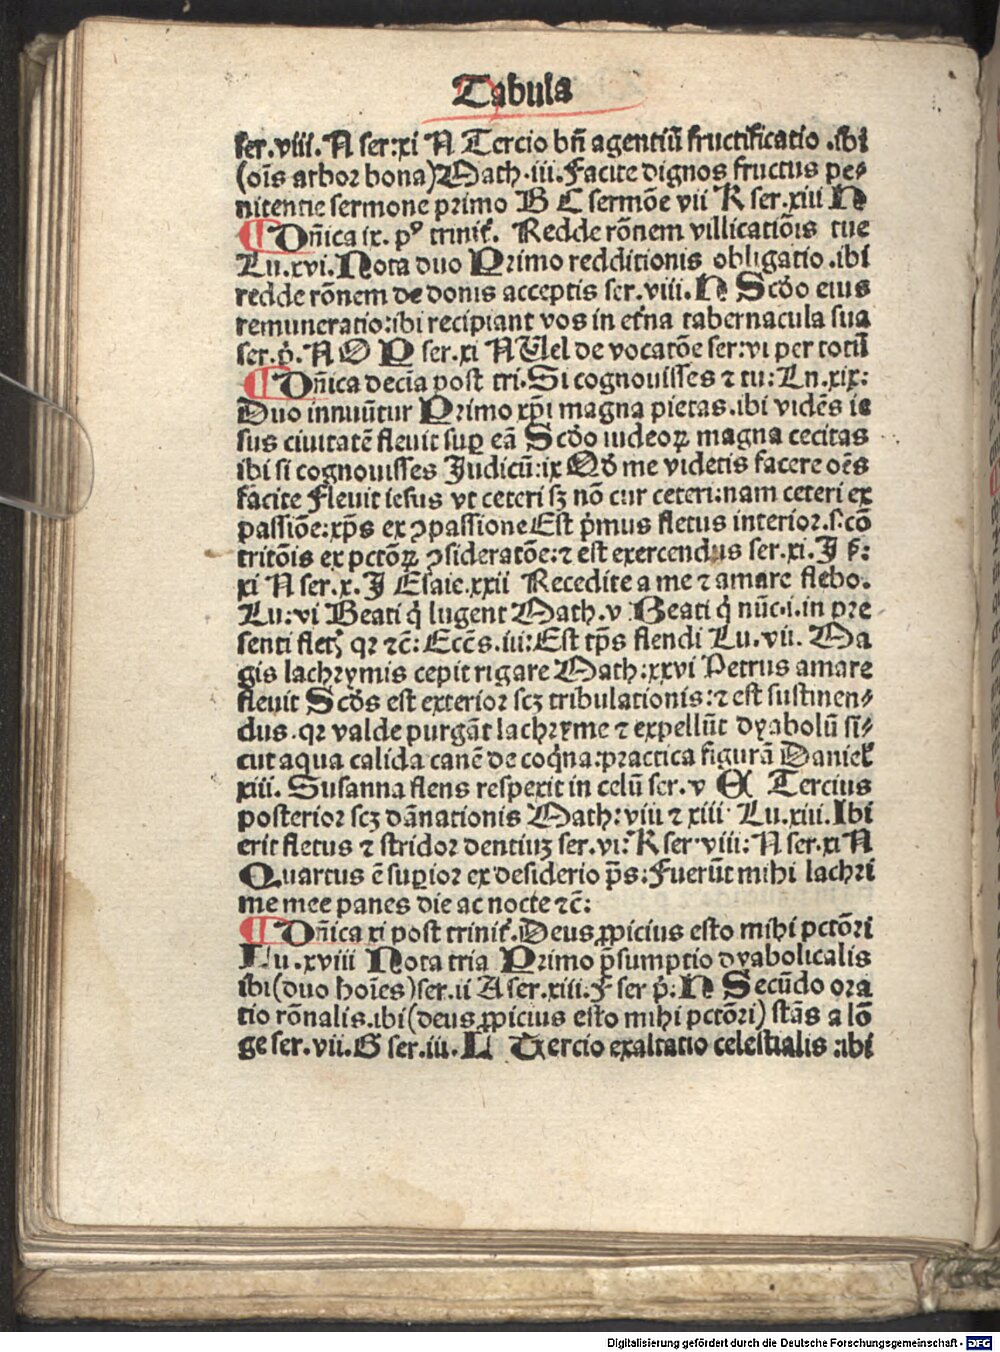 Tabula
ser.viii. N ser:xi N Tercio bn̄ agentiū fructificatio .ibi
(oīs arbor bona) Math.iii. Facite dignos fructus pe⸗
nitentie sermone primo B C sermōe vii K ser.xiii N
¶ Dn̄ica ix. pꝰ trinit̄. Redde rōnem villicatiōis tue
Lu.xvi. Nota duo Primo redditionis obligatio .ibi
redde rōnem de donis acceptis ser.viii. N Scḋo eius
remuneratio: ibi recipiant vos in et̄na tabernacula sua
ser.p̄. N O P ser.xi N Uel de vocatōe ser:vi per totū
¶ Dn̄ica decīa post tri. Si cognouisses ⁊ tu: Ln.xix:
Duo innuūtur Primo xp̄i magna pietas .ibi vidēs ie
sus ciuitatē fleuit suꝑ eā Scḋo iudeoꝝ magna cecitas
ibi si cognouisses Judicū: ix Qḋ me videtis facere oēs
facite Fleuit iesus vt ceteri sꝫ nō cur ceteri: nam ceteri ex
passiōe: xp̄s ex ꝯpassione Est p̄mus fletus interior .s. cō
tritōis ex pctōꝝ ꝯsideratōe: ⁊ est exercendus ser.xi. J s̄:
xi N ser.x. J Esaie.xxii Recedite a me ⁊ amare flebo.
Lu:vi Beati q̇ lugent Math.v Beati q̇ nūc .i. in pre
senti fletꝭ qꝛ ⁊c̄: Eccēs.iii: Est tp̄s flendi Lu.vii. Ma
gis lachrymis cepit rigare Math:xxvi Petrus amare
fleuit Scḋs est exterior scꝫ tribulationis: ⁊ est sustinen⸗
dus .qꝛ valde purgāt lachryme ⁊ expellūt dyabolū si⸗
cut aqua calida canē de coq̇na: practica figurā Daniel̄
xiii. Susanna flens respexit in celū ser.v M Tercius
posterior scꝫ dānationis Math:viii ⁊ xiii Lu.xiii. Ibi
erit fletus ⁊ stridor dentiuꝫ ser.vi: K ser.viii: N ser.xi N
Quartus ē suꝑior ex desiderio p̄s: Fuerūt mihi lachri
me mee panes die ac nocte ⁊c̄:
¶ Dn̄ica xi post trinit̄. Deus ꝓpicius esto mihi pctōri
Lu.xviii Nota tria Primo p̄sumptio dyabolicalis
ibi (duo hoīes) ser.ii A ser.xiii. F ser p̄: N Secūdo ora
tio rōnalis .ibi (deus ꝓpicius esto mihi pctōri) stās a lō
ge ser.vii. G ser.iii. L Tercio exaltatio celestialis :ibi
Digitalisierung gefördert durch die Deutsche Forschungsgemeinschaft - DFG